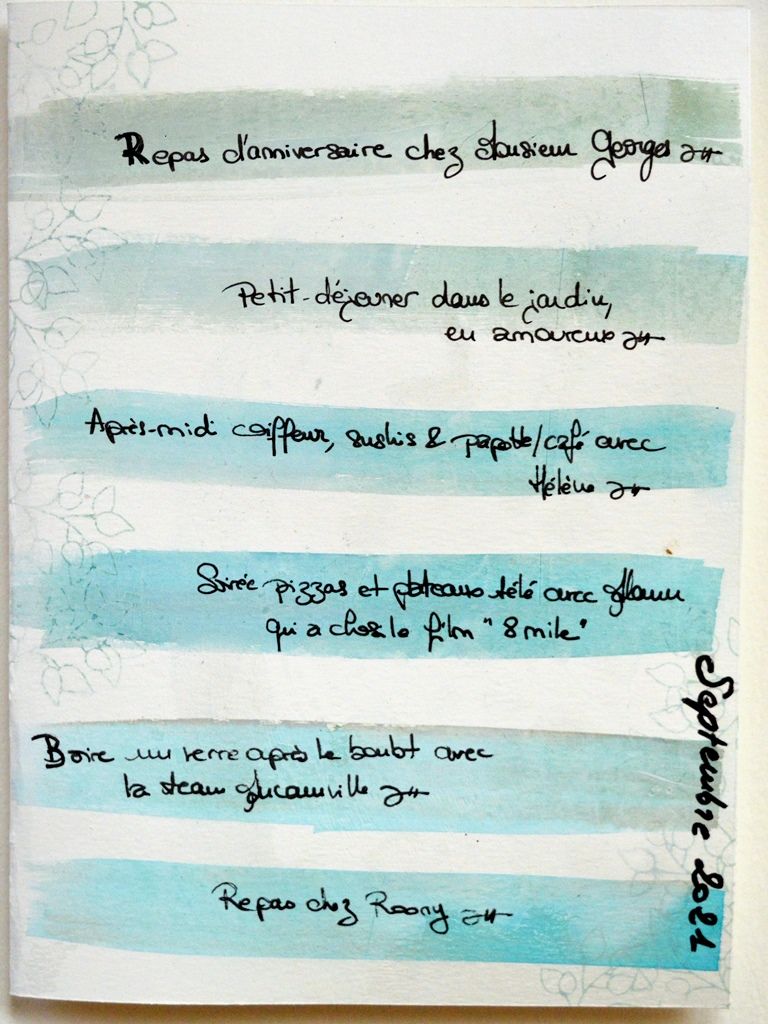 Repas d'anniversaire chez Monsieur Georges
Petit-déjeuner dans le jardin,
en amoureux
Après-midi coiffeur, sushis & papotte/café avec
Hélène
Soirée pizzas et plateaux télé avec
qui a choisi le film "8 mile"
Boire un verre après le boulot avec
la team
Repas chez Roony
Septembre 2021